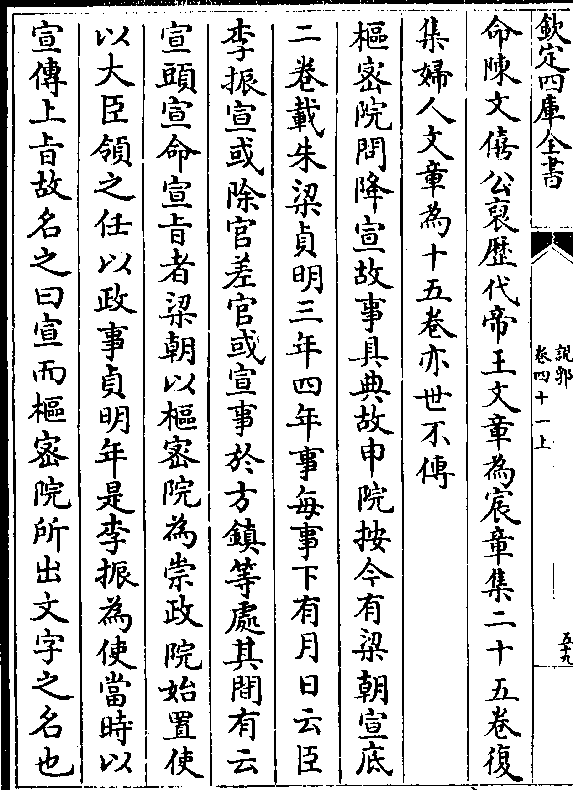 欽定四庫全書
說郛
卷四十一上
五十九
命陳文僖公裒歷代帝王文章為宸章集二十五卷復
集婦人文章為十五卷亦世不傳
樞密院問降宣故事具典故申院按今有梁朝宣底
二卷載朱梁貞明三年四年事每事下有月日云臣
李振宣或除官差官或宣事於方鎮等處其間有云
宣頭宣命宣旨者梁朝以樞密院為崇政院始置使
以大臣領之任以政事貞明年是李振為使當時以
宣傳上旨故名之曰宣而樞密院所出文字之名也